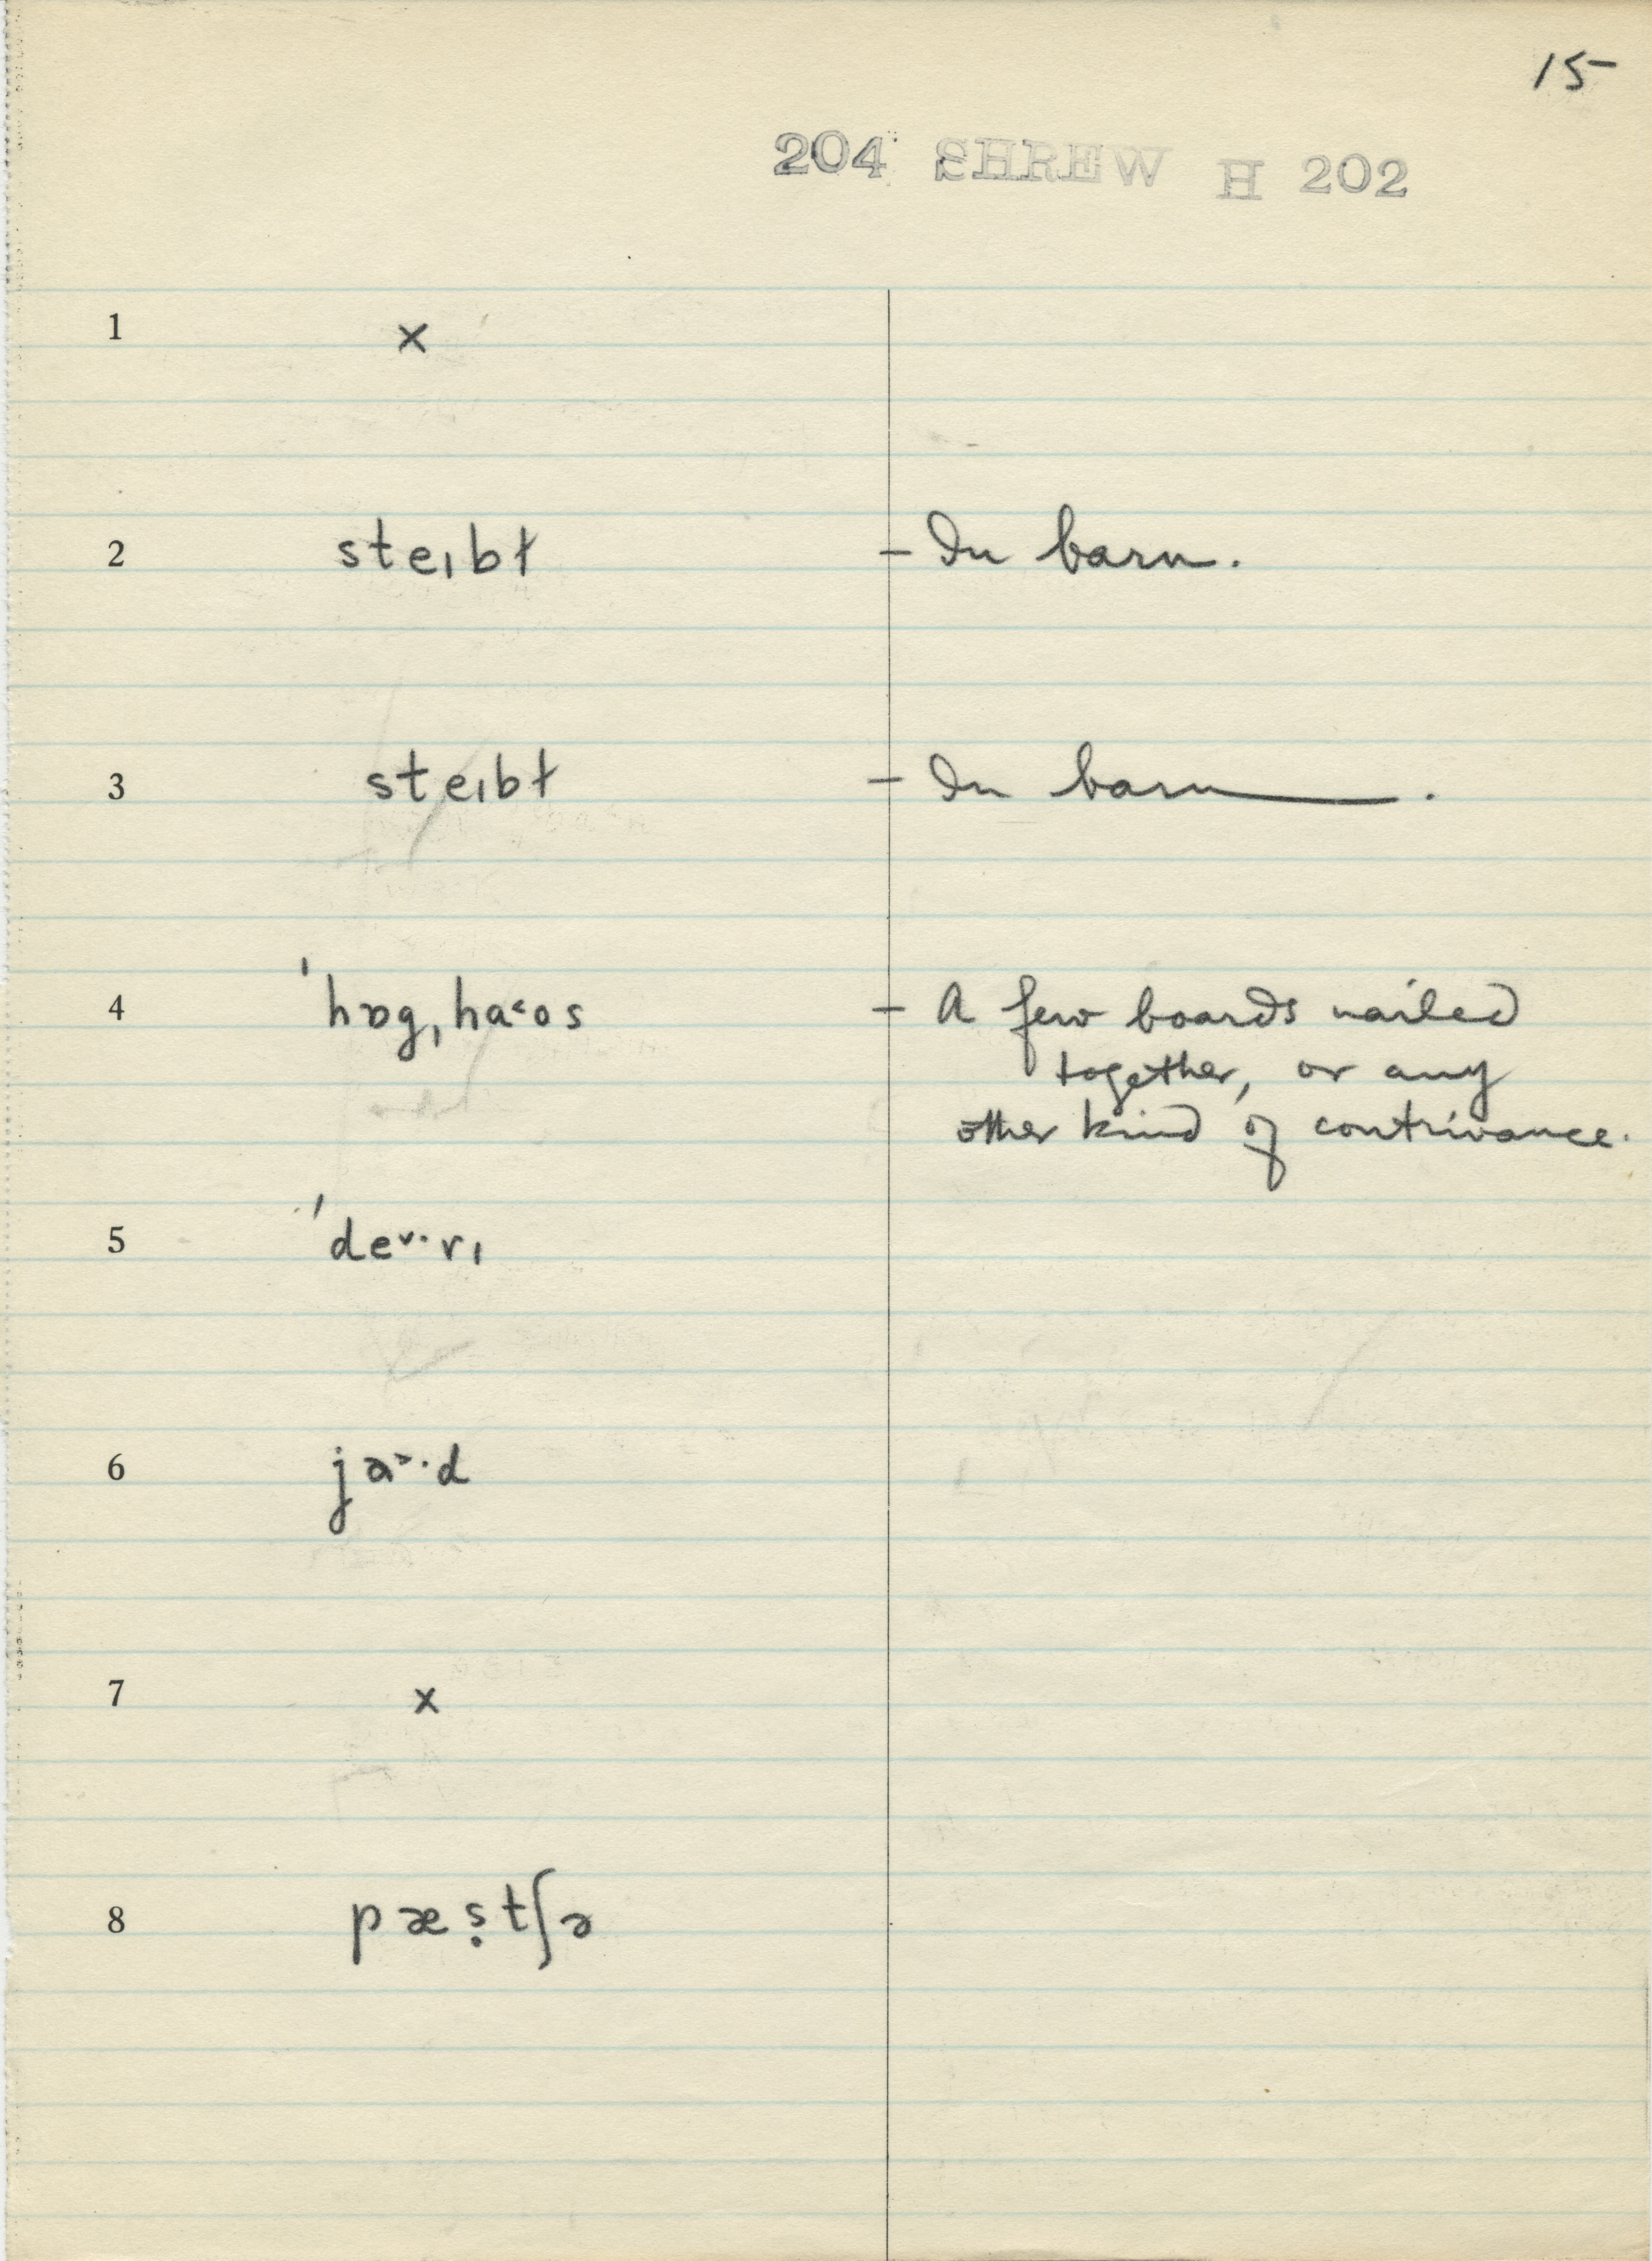 15
204 SHREW H 202
1 ×
2 steɪbɫ – In barn.
3 steɪbɫ – In barn .
4 ˈhɒgˌha˂ʊs – A few boards nailed
together, or any
other kind of contrivance.
5 ˈde˅·rɪ
6 ja˃·d
7 ×
8 pæṣtʃə